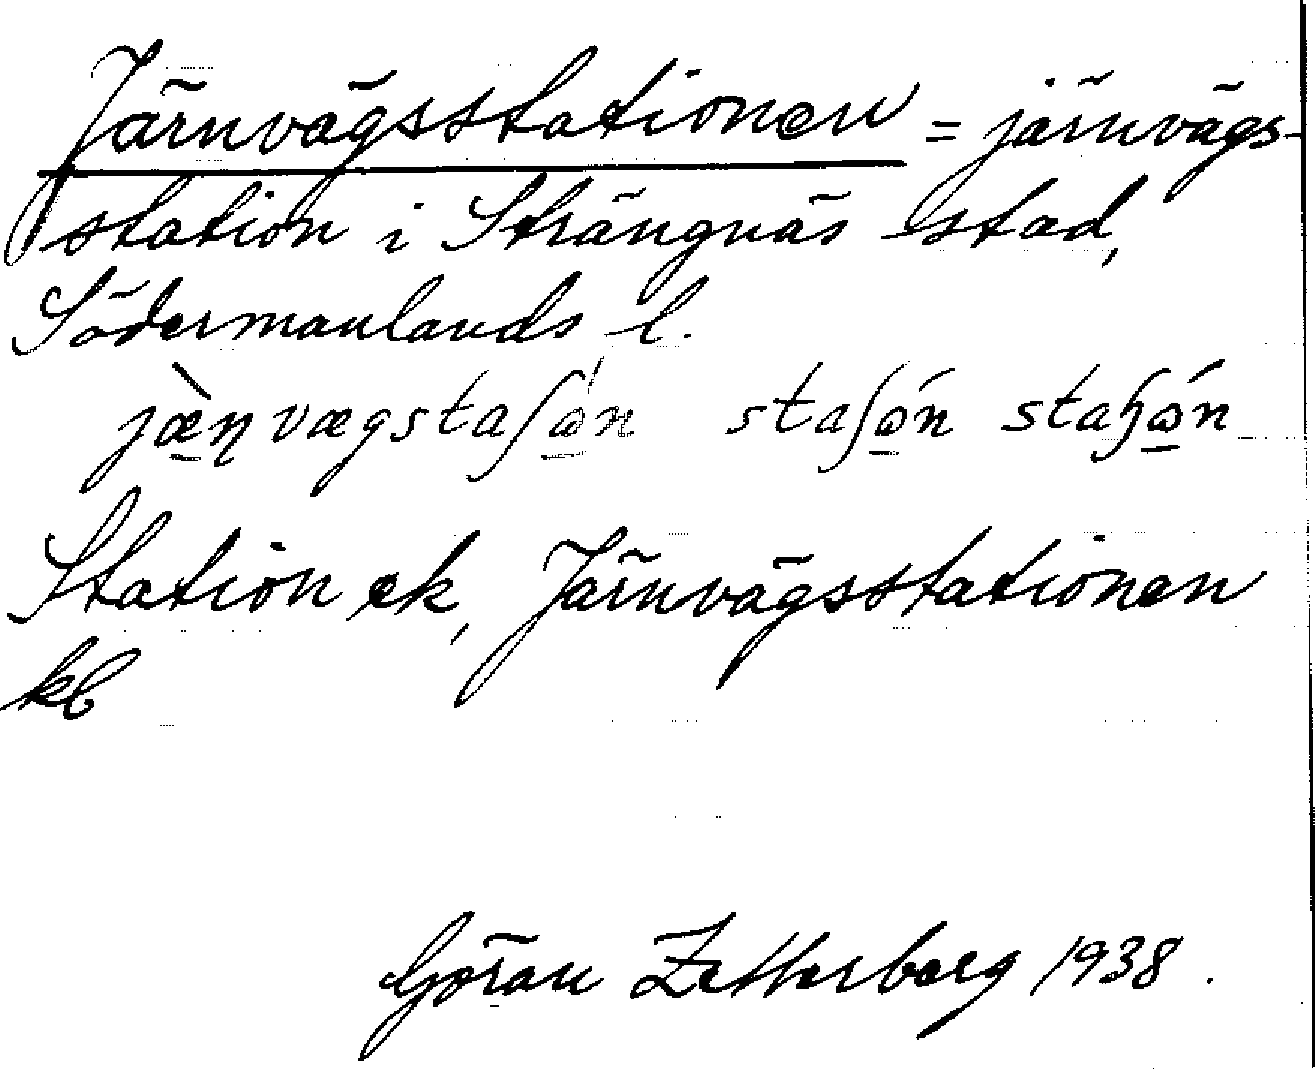 Järnvägsstationen = järnvägs-
station i Strängnäs stad,
Södermanlands l.
jæ̀ɳvægstaʃώ̲n staʃώ̲n staɧώ̲n
Station ek, Järnvägsstationen
kb
Göran Zetterberg 1938.